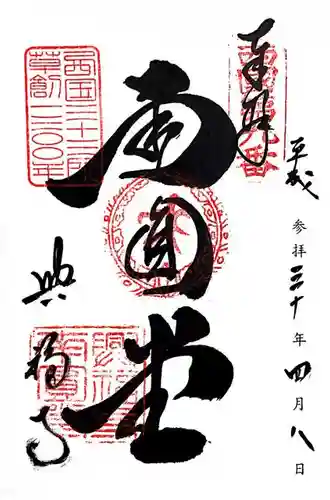 平成
参拝三十年四月八日
奉拝
西国三十三所
草創一三〇〇年
南圓堂
興福寺